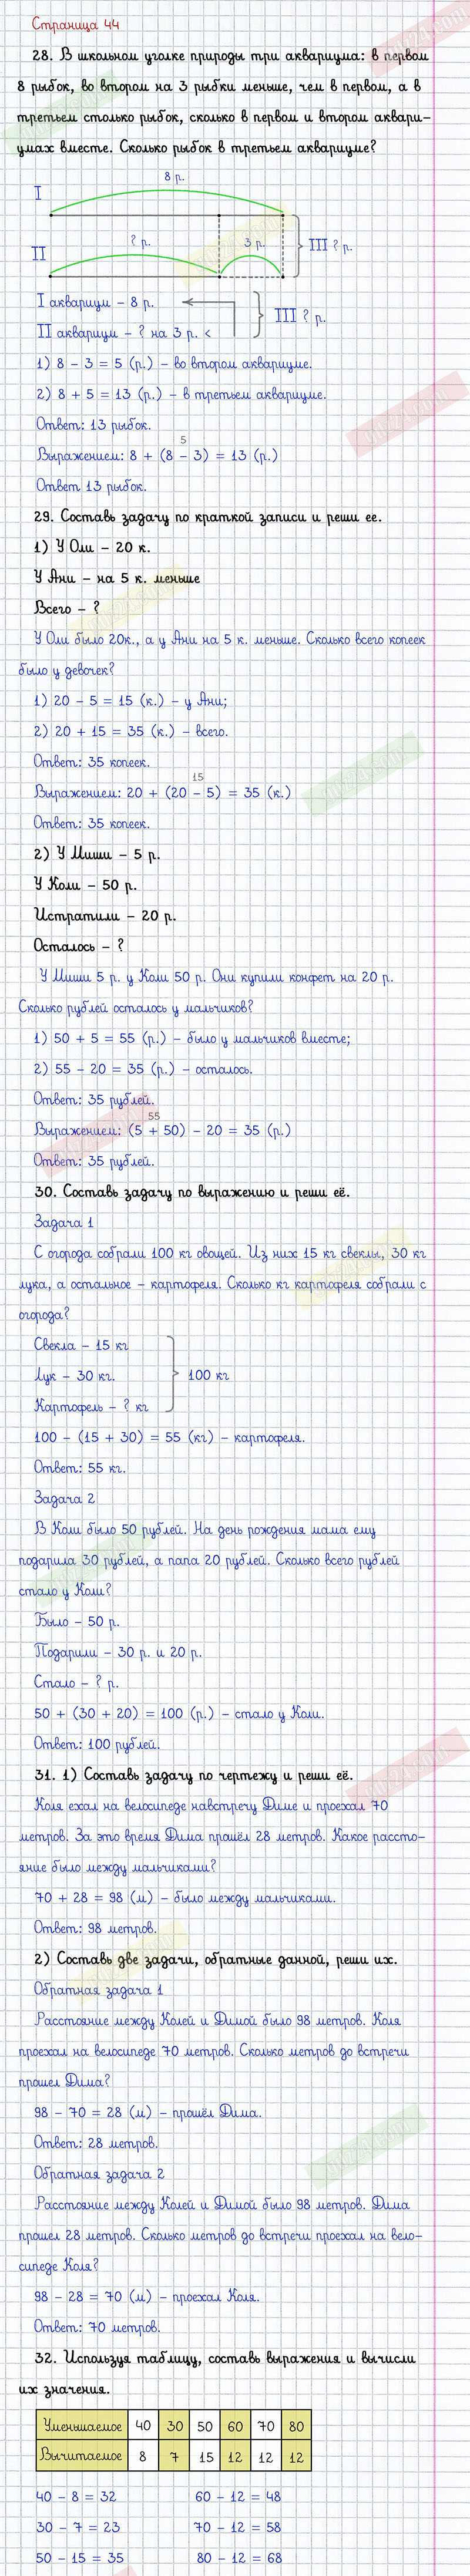 Страница 44
28. В школьном уголке природы три аквариума: в первом
8 рыбок, во втором на 3 рыбки меньше, чем в первом, а в
третьем столько рыбок, сколько в первом и втором аквари-
умах вместе. Сколько рыбок в третьем аквариуме?
8 р.
I
? р.
3 р.
II
III ? р.
I аквариум – 8 р.
III ? р.
II аквариум – ? на 3 р. <
1) 8 – 3 = 5 (р.) – во втором аквариуме.
2) 8 + 5 = 13 (р.) – в третьем аквариуме.
Ответ: 13 рыбок.
5
Выражением: 8 + (8 – 3) = 13 (р.)
Ответ 13 рыбок.
29. Составь задачу по краткой записи и реши ее.
1) У Оли – 20 к.
У Ани – на 5 к. меньше
Всего – ?
У Оли было 20к., а у Ани на 5 к. меньше. Сколько всего копеек
было у девочек?
1) 20 – 5 = 15 (к.) – у Ани;
2) 20 + 15 = 35 (к.) – всего.
Ответ: 35 копеек.
15
Выражением: 20 + (20 – 5) = 35 (к.)
Ответ: 35 копеек.
2) У Миши – 5 р.
У Коли – 50 р.
Истратили – 20 р.
Осталось – ?
У Миши 5 р. у Коли 50 р. Они купили конфет на 20 р.
Сколько рублей осталось у мальчиков?
1) 50 + 5 = 55 (р.) – было у мальчиков вместе;
2) 55 – 20 = 35 (р.) – осталось.
Ответ: 35 рублей.
55
Выражением: (5 + 50) – 20 = 35 (р.)
Ответ: 35 рублей.
30. Составь задачу по выражению и реши её.
Задача 1
С огорода собрали 100 кг овощей. Из них 15 кг свеклы, 30 кг
лука, а остальное – картофеля. Сколько кг картофеля собрали с
огорода?
Свекла – 15 кг
Лук – 30 кг.
100 кг
Картофель – ? кг
100 – (15 + 30) = 55 (кг) – картофеля.
Ответ: 55 кг.
Задача 2
В Коли было 50 рублей. На день рождения мама ему
подарила 30 рублей, а папа 20 рублей. Сколько всего рублей
стало у Коли?
Было – 50 р.
Подарили – 30 р. и 20 р.
Стало – ? р.
50 + (30 + 20) = 100 (р.) – стало у Коли.
Ответ: 100 рублей.
31. 1) Составь задачу по чертежу и реши её.
Коля ехал на велосипеде навстречу Диме и проехал 70
метров. За это время Дима прошёл 28 метров. Какое рассто-
яние было между мальчиками?
70 + 28 = 98 (м) – было между мальчиками.
Ответ: 98 метров.
2) Составь две задачи, обратные данной, реши их.
Обратная задача 1
Расстояние между Колей и Димой было 98 метров. Коля
проехал на велосипеде 70 метров. Сколько метров до встречи
прошел Дима?
98 – 70 = 28 (м) – прошёл Дима.
Ответ: 28 метров.
Обратная задача 2
Расстояние между Колей и Димой было 98 метров. Дима
прошел 28 метров. Сколько метров до встречи проехал на вело-
сипеде Коля?
98 – 28 = 70 (м) – проехал Коля.
Ответ: 70 метров.
32. Используя таблицу, составь выражения и вычисли
их значения.
Уменьшаемое 40 30 50 60 70 80
Вычитаемое 8 7 15 12 12 12
40 – 8 = 32 60 – 12 = 48
30 – 7 = 23 70 – 12 = 58
50 – 15 = 35 80 – 12 = 68